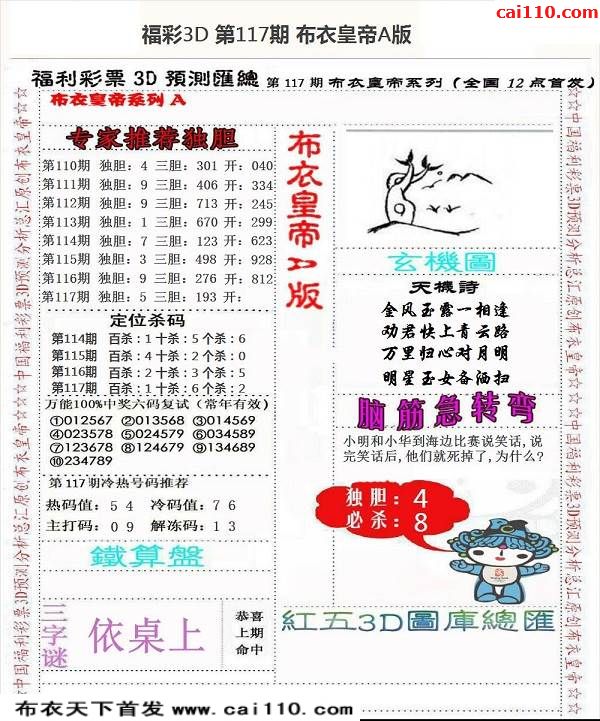 cai110.com
福彩3D 第117期 布衣皇帝A版
福利彩票 3D 預測匯總 第 117 期 布衣皇帝系列 (全国 12 点首发)
布衣皇帝系列 A
专家推荐独胆
第110期 独胆: 4 三胆: 301 开: 040
第111期 独胆: 9 三胆: 406 开: 334
第112期 独胆: 9 三胆: 713 开: 245
第113期 独胆: 1 三胆: 670 开: 299
第114期 独胆: 7 三胆: 123 开: 623
第115期 独胆: 3 三胆: 498 开: 928
第116期 独胆: 9 三胆: 276 开: 812
第117期 独胆: 5 三胆: 193 开:
定位杀码
第114期 百杀: 1 十杀: 5 个杀: 6
第115期 百杀: 4 十杀: 2 个杀: 0
第116期 百杀: 2 十杀: 3 个杀: 5
第117期 百杀: 1 十杀: 6 个杀: 2
万能100%中奖六码复试 (常年有效)
①012567 ②013568 ③014569
④023578 ⑤024579 ⑥034589
⑦123678 ⑧124679 ⑨134689
⑩234789
第117期冷热号码推荐
热码值: 5 4 冷码值: 7 6
主打码: 0 9 解冻码: 1 3
鐵算盤
三字谜
依桌上
恭喜
上期
命中
布衣皇帝A版
玄機圖
天機詩
金风玉露一相逢
劝君快上青云路
万里归心对月明
明星玉女备洒扫
脑筋急转弯
小明和小华到海边比赛说笑话,说
完笑话后,他们就死掉了,为什么?
独胆: 4
必杀: 8
紅五3D圖庫總匯
☆☆中国福利彩票3D预测分析总汇原创布衣皇帝☆☆
☆☆中国福利彩票3D预测分析总汇原创布衣皇帝☆☆
布衣天下首发 www.cai110.com